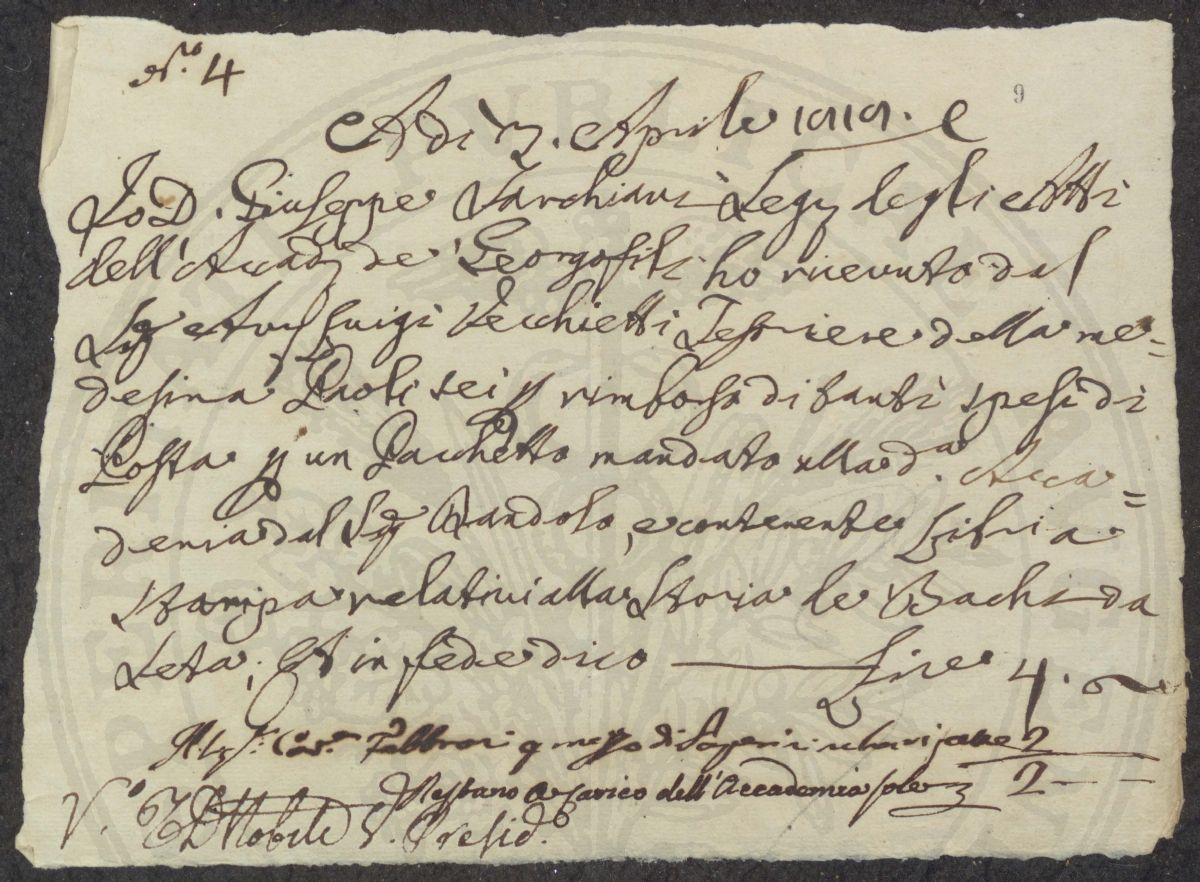 N.º 4
9
A di 3. Aprile 1819.
Io D. Giuseppe Sarchiani Seg. degli Atti
dell'Accad. de' Georgofili ho ricevuto dal
Sig. Luigi Vecchietti Tesoriere della me=
desima Paoli sei p rimborso di tanti spesi di
Posta p un Pacchetto mandato alla d.ª Acca=
demia dal Sig. Dandolo, e contenente Libri a
stampa relativi alla Storia de Bachi da
Seta; Et in fede dico — Lire 4. -
Al Sig. Cav. Fabbroni p mezzo di
2
Restano a carico dell'Accademia sole £ 2 - -
V.º Presid.